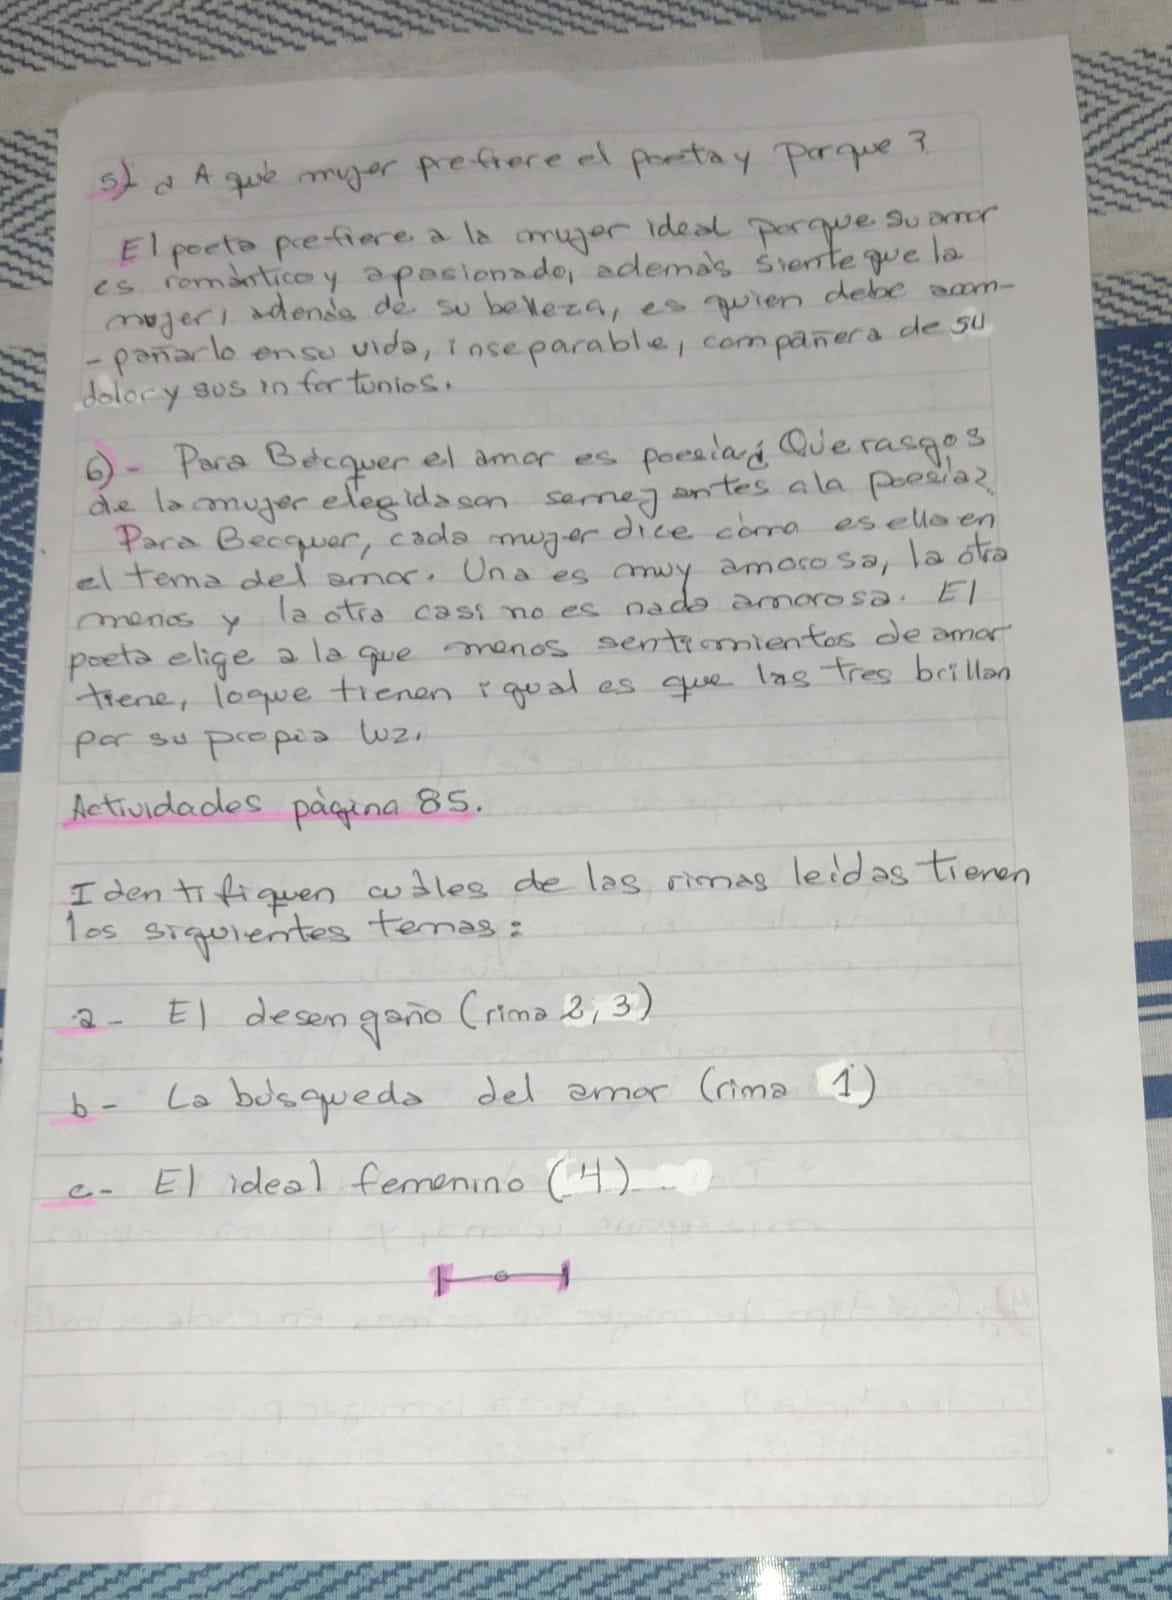 5) ¿ A qué mujer prefiere el poeta y porque?
El poeta prefiere a la mujer ideal porque su amor
es romántico y apasionado, además siente que la
mujer, además de su belleza, es quien debe acom-
-pañarlo en su vida, inseparable, compañera de su
dolor y sus infortunios.
6)- Para Bécquer el amor es poesía ¿ Que rasgos
de la mujer elegida son semejantes a la poesía?
Para Becquer, cada mujer dice cómo es ella en
el tema del amor. Una es muy amorosa, la otra
menos y la otra casi no es nada amorosa. El
poeta elige a la que menos sentimientos de amor
tiene, lo que tienen igual es que las tres brillan
por su propia luz.
Actividades página 85.
Identifiquen cuáles de las rimas leídas tienen
los siguientes temas:
a- El desengaño (rima 2, 3)
b- La búsqueda del amor (rima 1)
c- El ideal femenino (4)